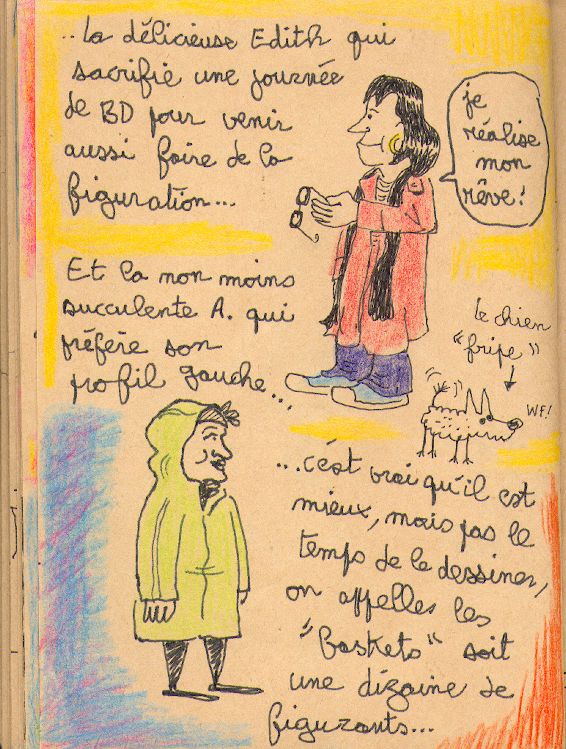 ..la délicieuse Edith qui
sacrifie une journée
de BD pour venir
aussi faire de la
figuration...
je
réalise
mon
rêve!
Et la non moins
succulente A. qui
préfère son
profil gauche...
le chien
"fripe"
WF!
...c'est vrai qu'il est
mieux, mais pas le
temps de le dessiner,
on appelles les
"baskets" soit
une dizaine de
figurants...